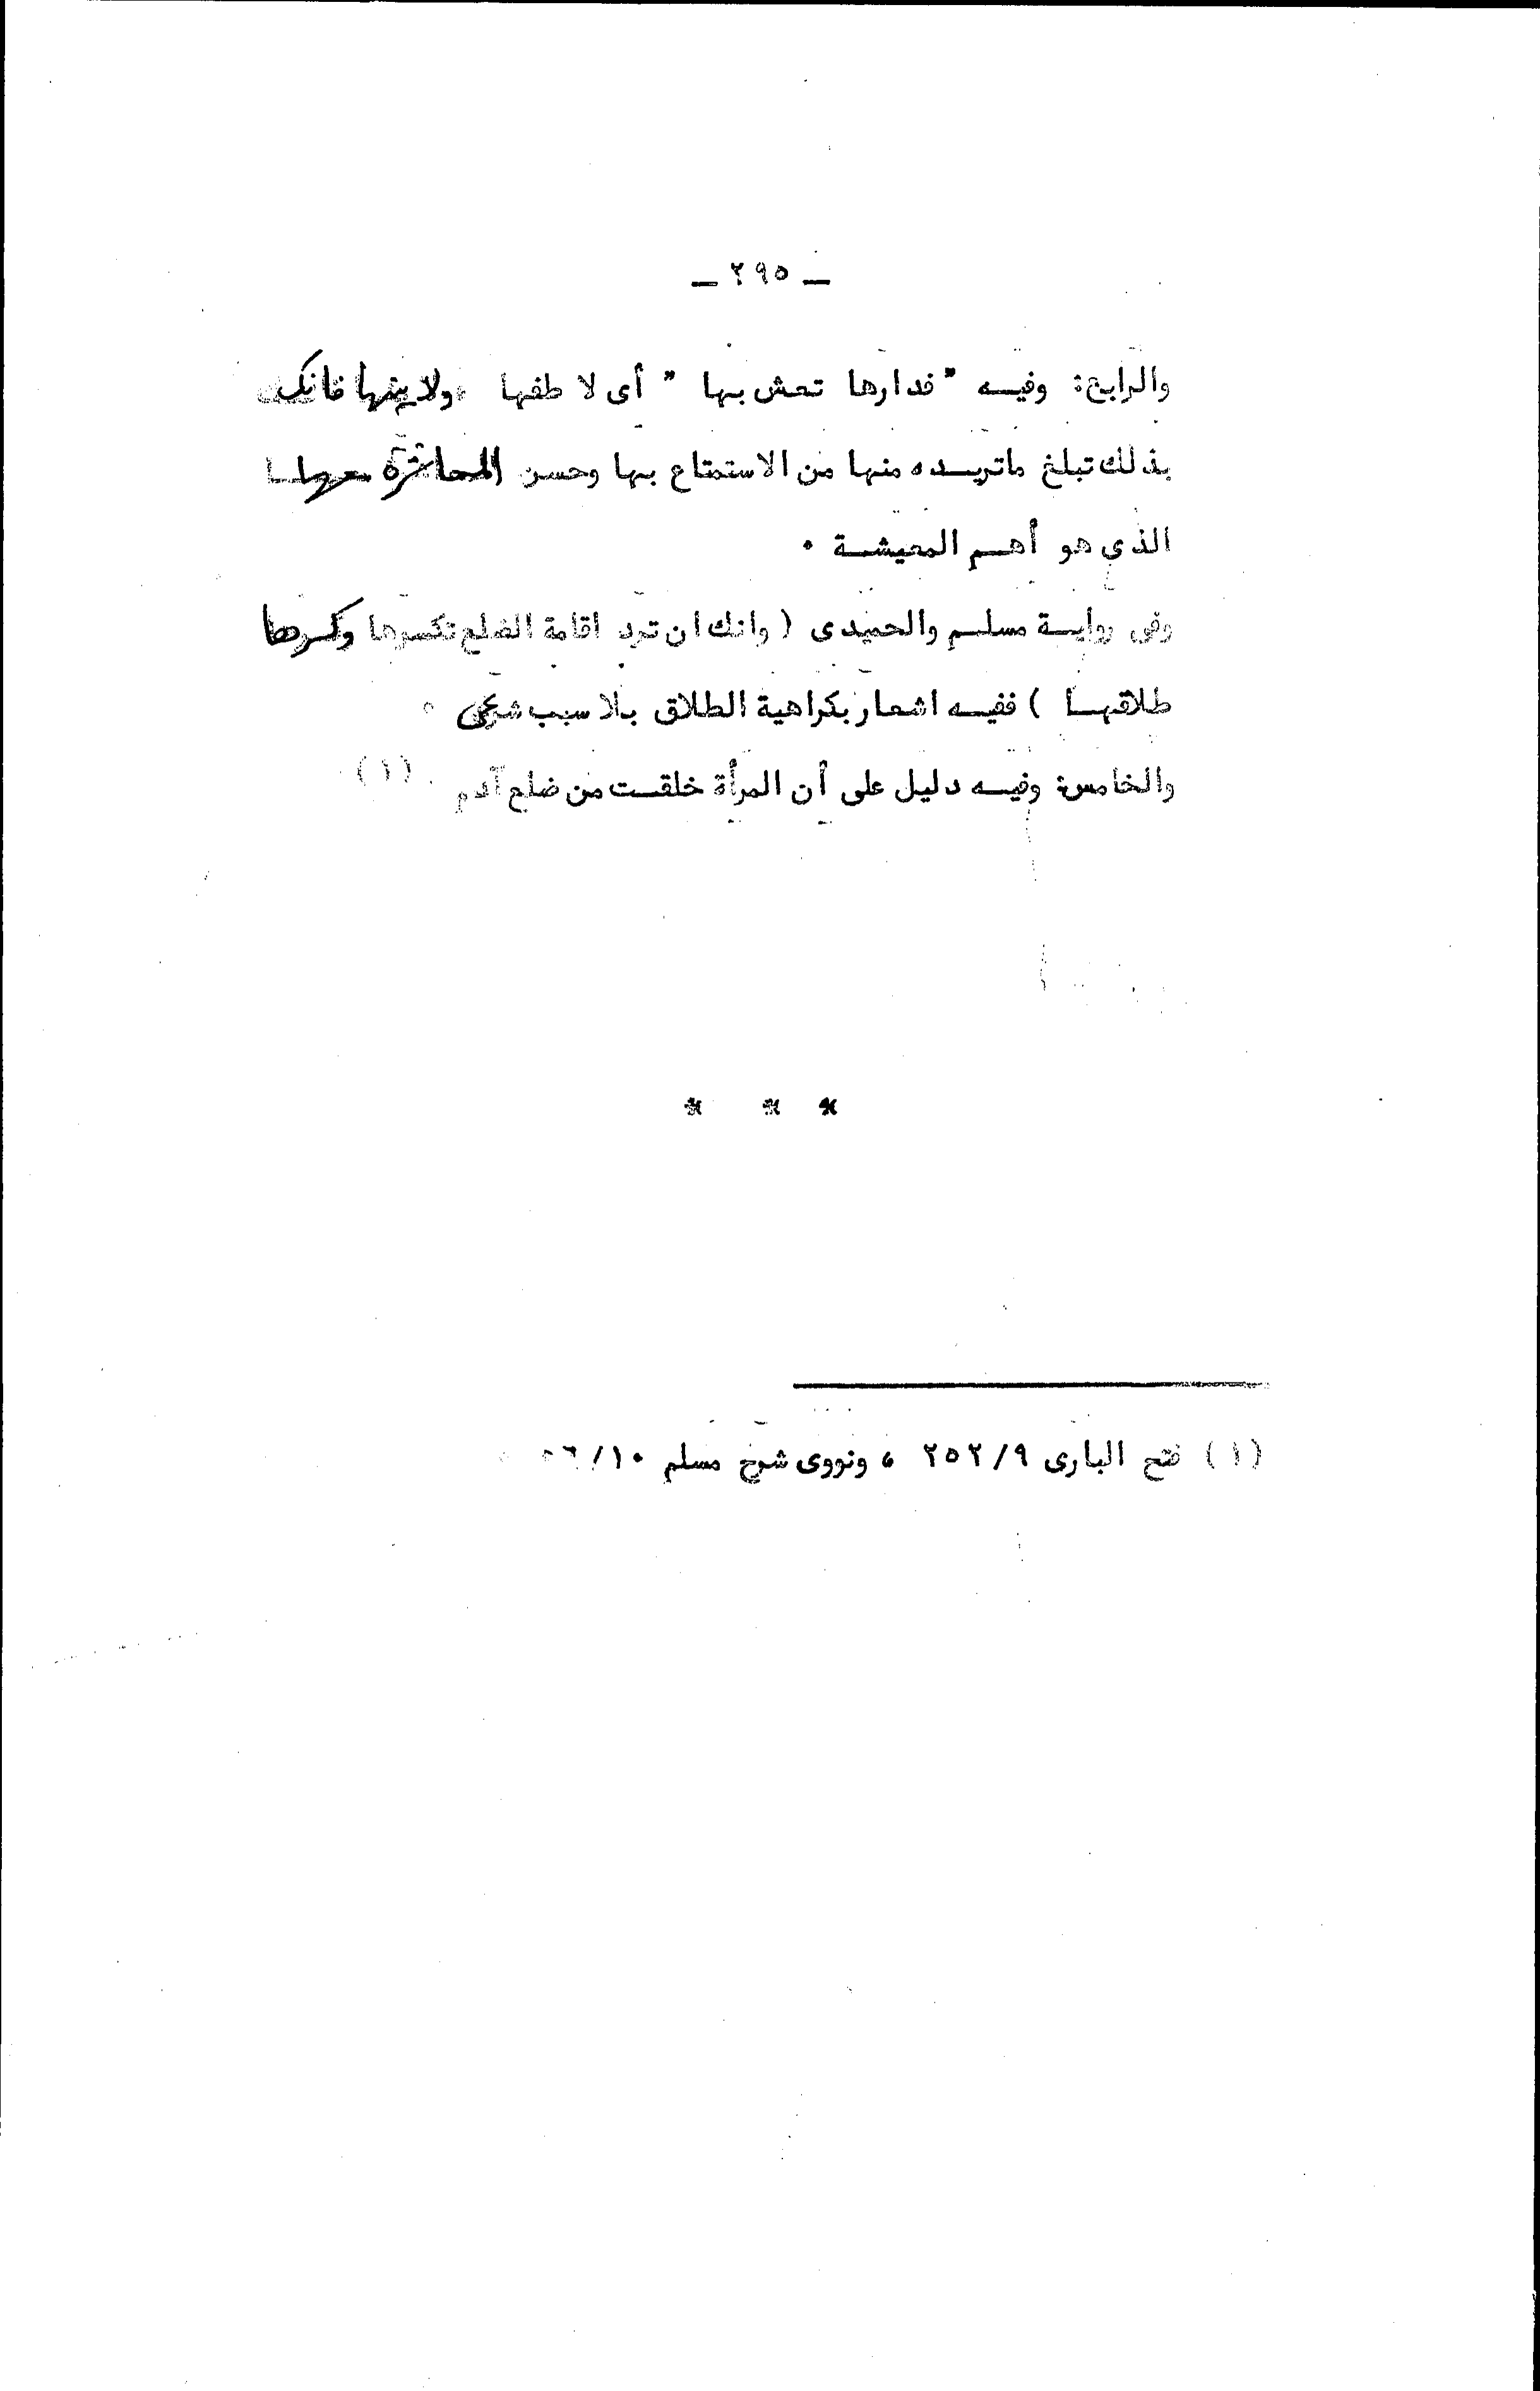 ـ ٢٩٥ ـ
والرابع: وفيـه "فدارها تعش بها" أى لاطفها ، ولاينها فانك
بذلك تبلغ ماتريـده منها من الاستمتاع بها وحسن المعاشرة معهـا
الذى هو أهـم المعيشـة .
وفى روايـة مسلـم والحميدى ( وانك ان ترد اقامة الضلع تكسرها وكسرها
طلاقهـا ) ففيـه اشعار بكراهية الطلاق بلا سبب شرعى .
والخامس: وفيـه دليل على أن المرأة خلقـت من ضلع آدم . (١)
* * *
(١) فتح البارى ٢٥٢/٩ ، ونووى شرح مسلم ٥٦/١٠